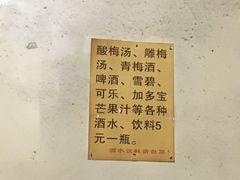 酸梅汤、雕梅
汤、青梅酒、
啤酒、雪碧、
可乐、加多宝
芒果汁等各种
酒水、饮料5
元一瓶。
酒水饮料请自取!